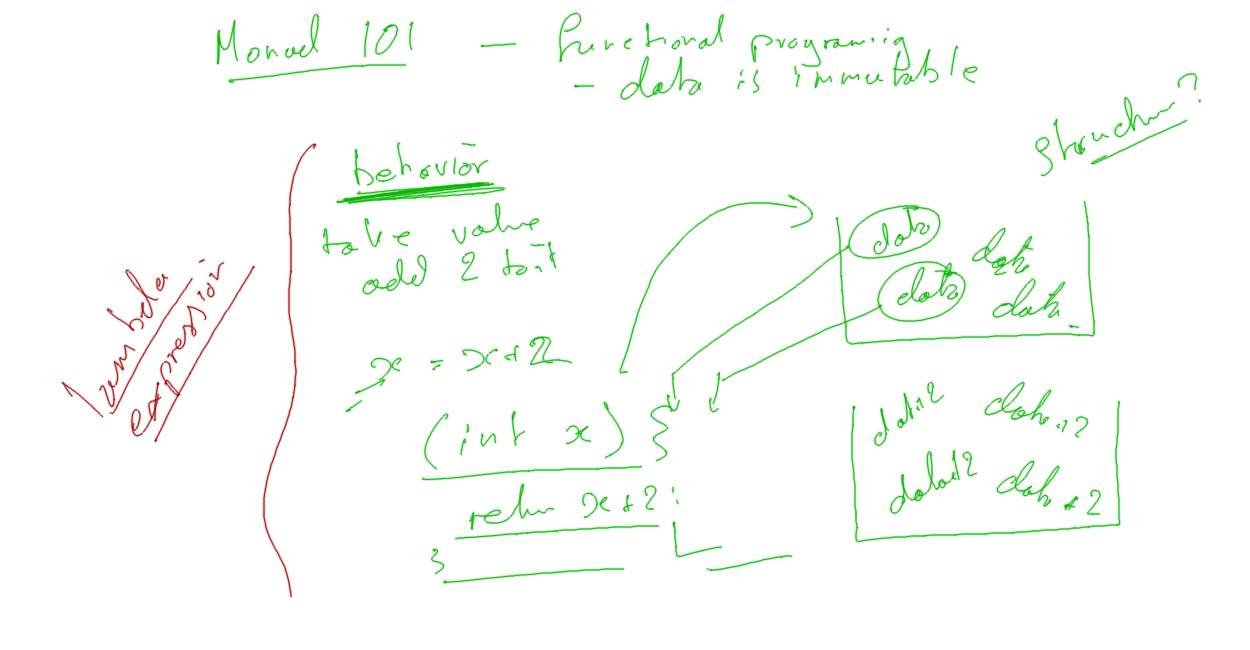 Monad 101 — functional programing
- data is immutable
structure?
behavior
take value
add 2 to it
lambda
expression
x = x + 2
(int x) {
return x + 2;
}
data data
data data
data+2 data+2
data+2 data+2